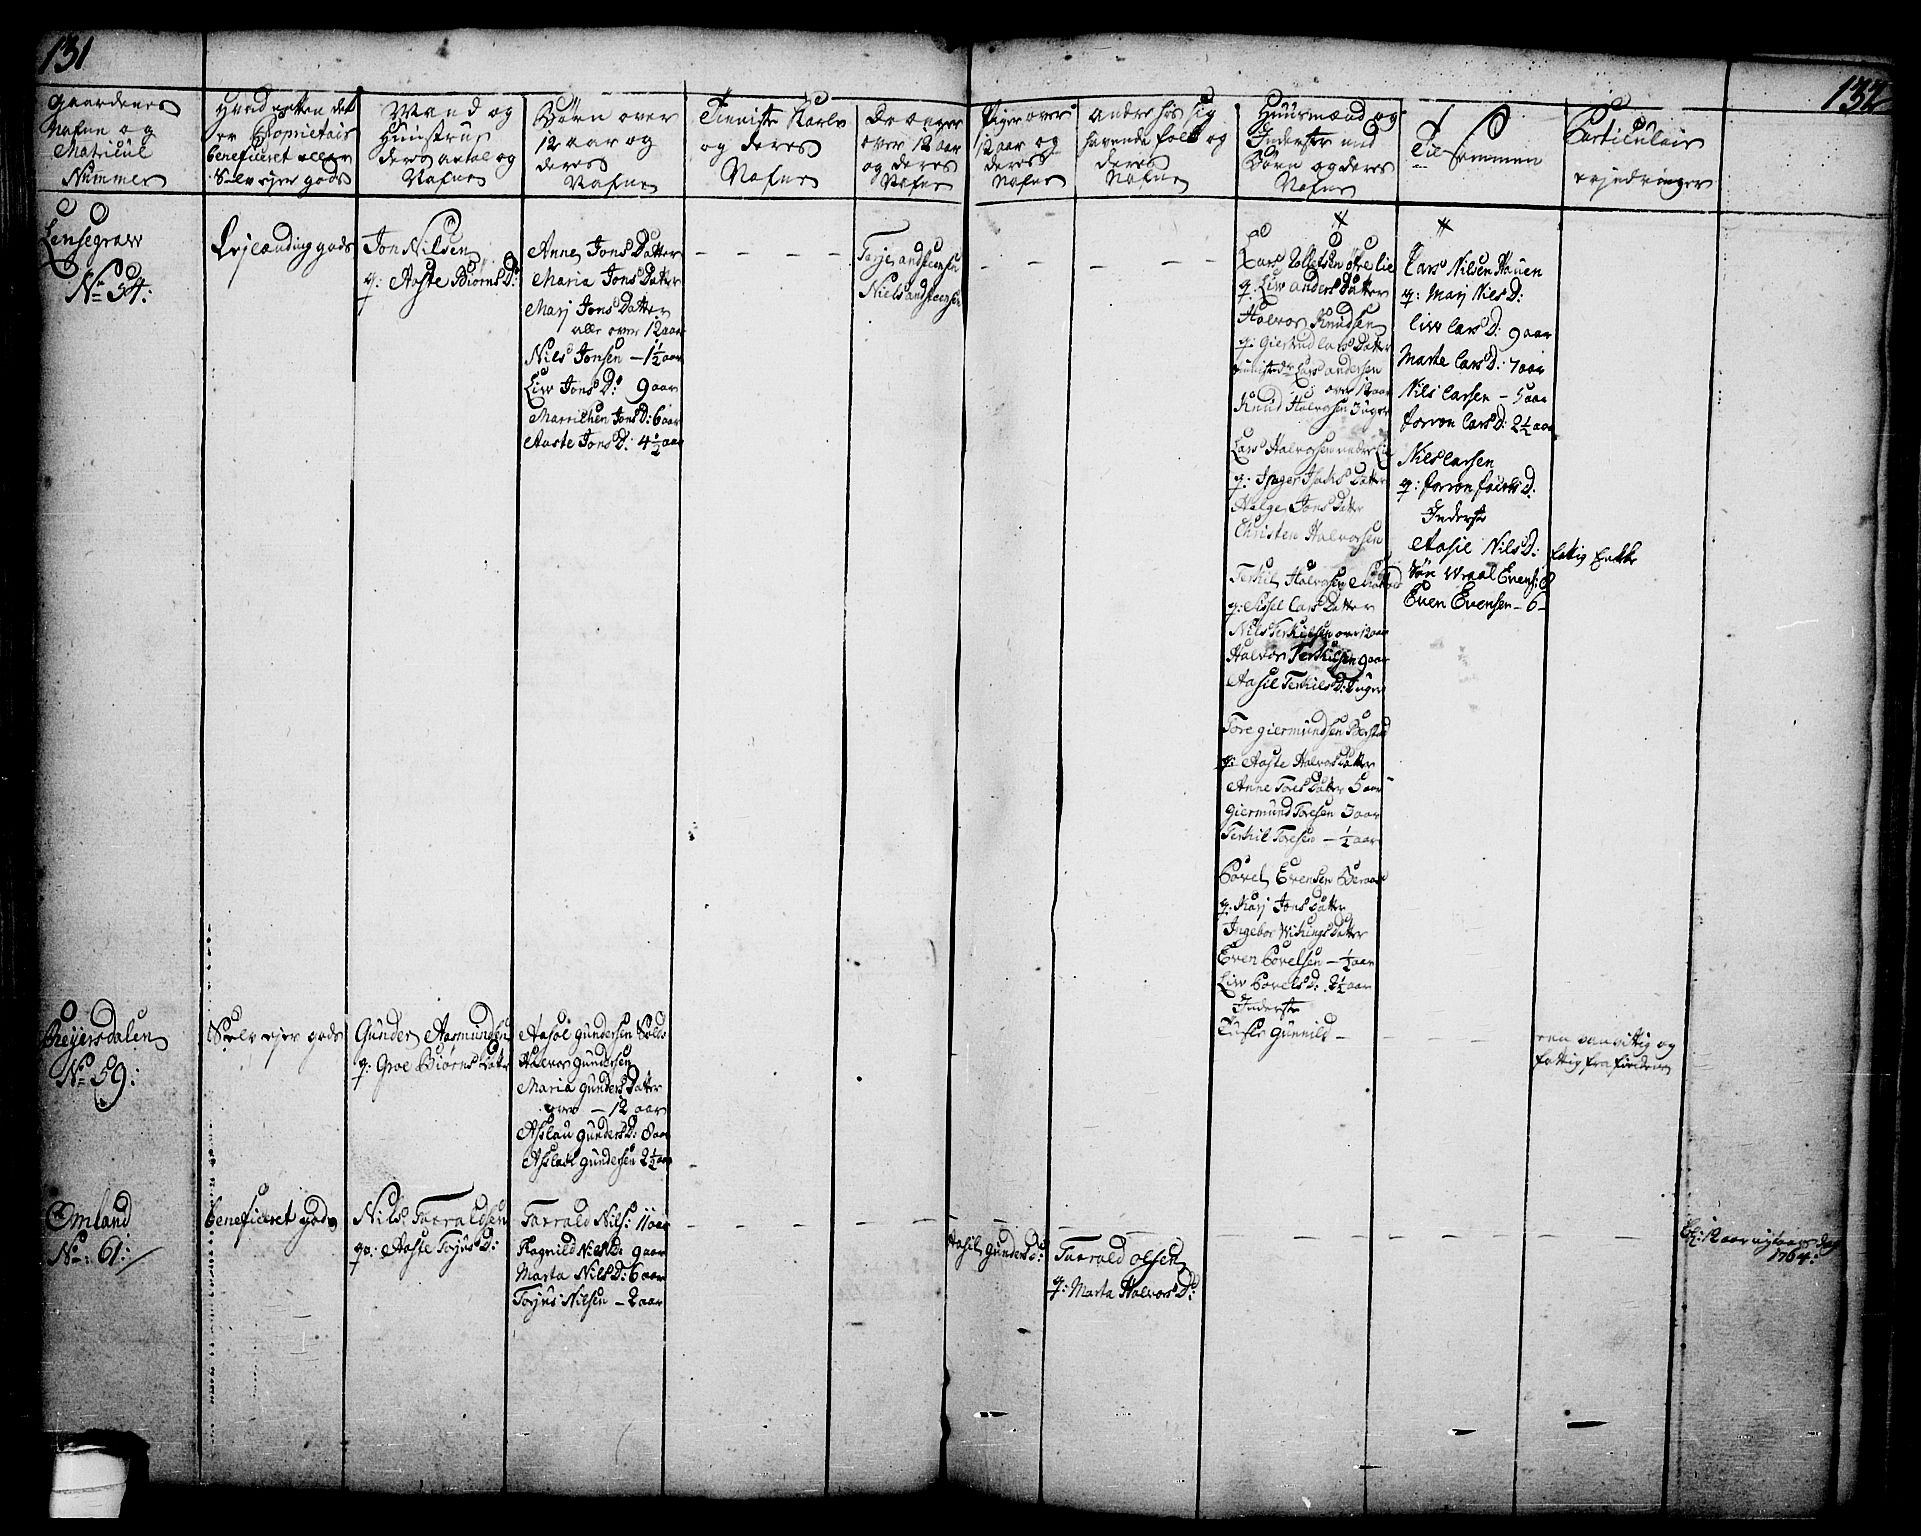 131
132
Gaardenes
Nafne og
Matricul
Nummer
Hvid enten det
er Proprietair
beneficeret eller
Selv ejer gods
Mand og
Huustrue
deres antal og
Nafne
Børn over
12 aar og
deres
Nafne
Tieniste Karle
og deres
Nafne
over 12 aar
og deres
Nafne
Piger over
12 aar og
deres
Nafne
andre hos sig
havende folk og
deres
Nafne
Huusmænd og
Inderster med
Børn og deres
Nafne
Til Sammen
Particulair
Lensegrav
No 54:
Lejlænding gods
Jon Nilsen
q: Aaste Biørns D:
Anne Jons Datter
Maria Jons Datter
Marj Jons Datter
alle over 12 aar
Nils Jonsen – 1½ aar
Liw Jons D: 9 aar
Marrichen Jons D: 6 aar
Aaste Jons D: 4½ aar
Tarje andsteensen
Niels andsteensen
Lars Tollefsen øvre lie
q. Liw anders Datter
Halvor Knudsen
q: Giertrud Lars Datter
Lars andersen
over 12 aar
Knud Halvorsen 3 uger
Lars Halvorsen nedre Lie
q: Inger Isachs Datter
Helge Jons Datter
Christen Halvorsen
Terkil Halvorsen
q: Sissel Lars Datter
Nils Terkilsen over 12 aar
Halvor Terkilsen 9 aar
Aasil Terkils D: 3 uger
Tore giermundsen Berstad
q: Aaste Halvors Datter
Anne Tores Datter 5 aar
giermund Toresen 3 aar
Terkil Toresen – ½ aar
Povel Evensen
q: Marj Jons Datter
Ingebor Wikings Datter
Even Povelsen – ½ aar
Liw Povels D: 2½ aar
Inderste
Gunnild
Lars Nilsen Hauen
q: Marj Niels D:
Liw Lars D: 9 aar
Marte Lars D: 7 aar
Nils Larsen – 5 aar
Jorron Lars D: 2½ aar
Niels Larsen
q: Jorron Jacobs D:
Inderste
Aasil Nils D:
Søn Wraal Evens: 8
Even Evensen – 6
fattig Enke
Breijersdalen
No 59:
Selv ejer gods
Gunder Aasmundsen
q: Groe Biørns Datter
Aasol gundersen
Halvor gundersen
Maria gunders Datter
over – 12 aar
Asslau gunders D: 8 aar
Asslak gundersen 2½ aar
een vanvittig og
fattig fra
Omland
No: 61:
beneficeret gods
Nils Tarraldsen
qv: Aaste Torjus D:
Tarrald Nils: 11 aar
Ragnild Niels D: 9 aar
Marta Nils D: 6 aar
Torjus Nilsen – 2 aar
Aasil Gunders D:
Tarrald olsen
q: Marta Halvors D:
12 aar nytaars dag
1764: